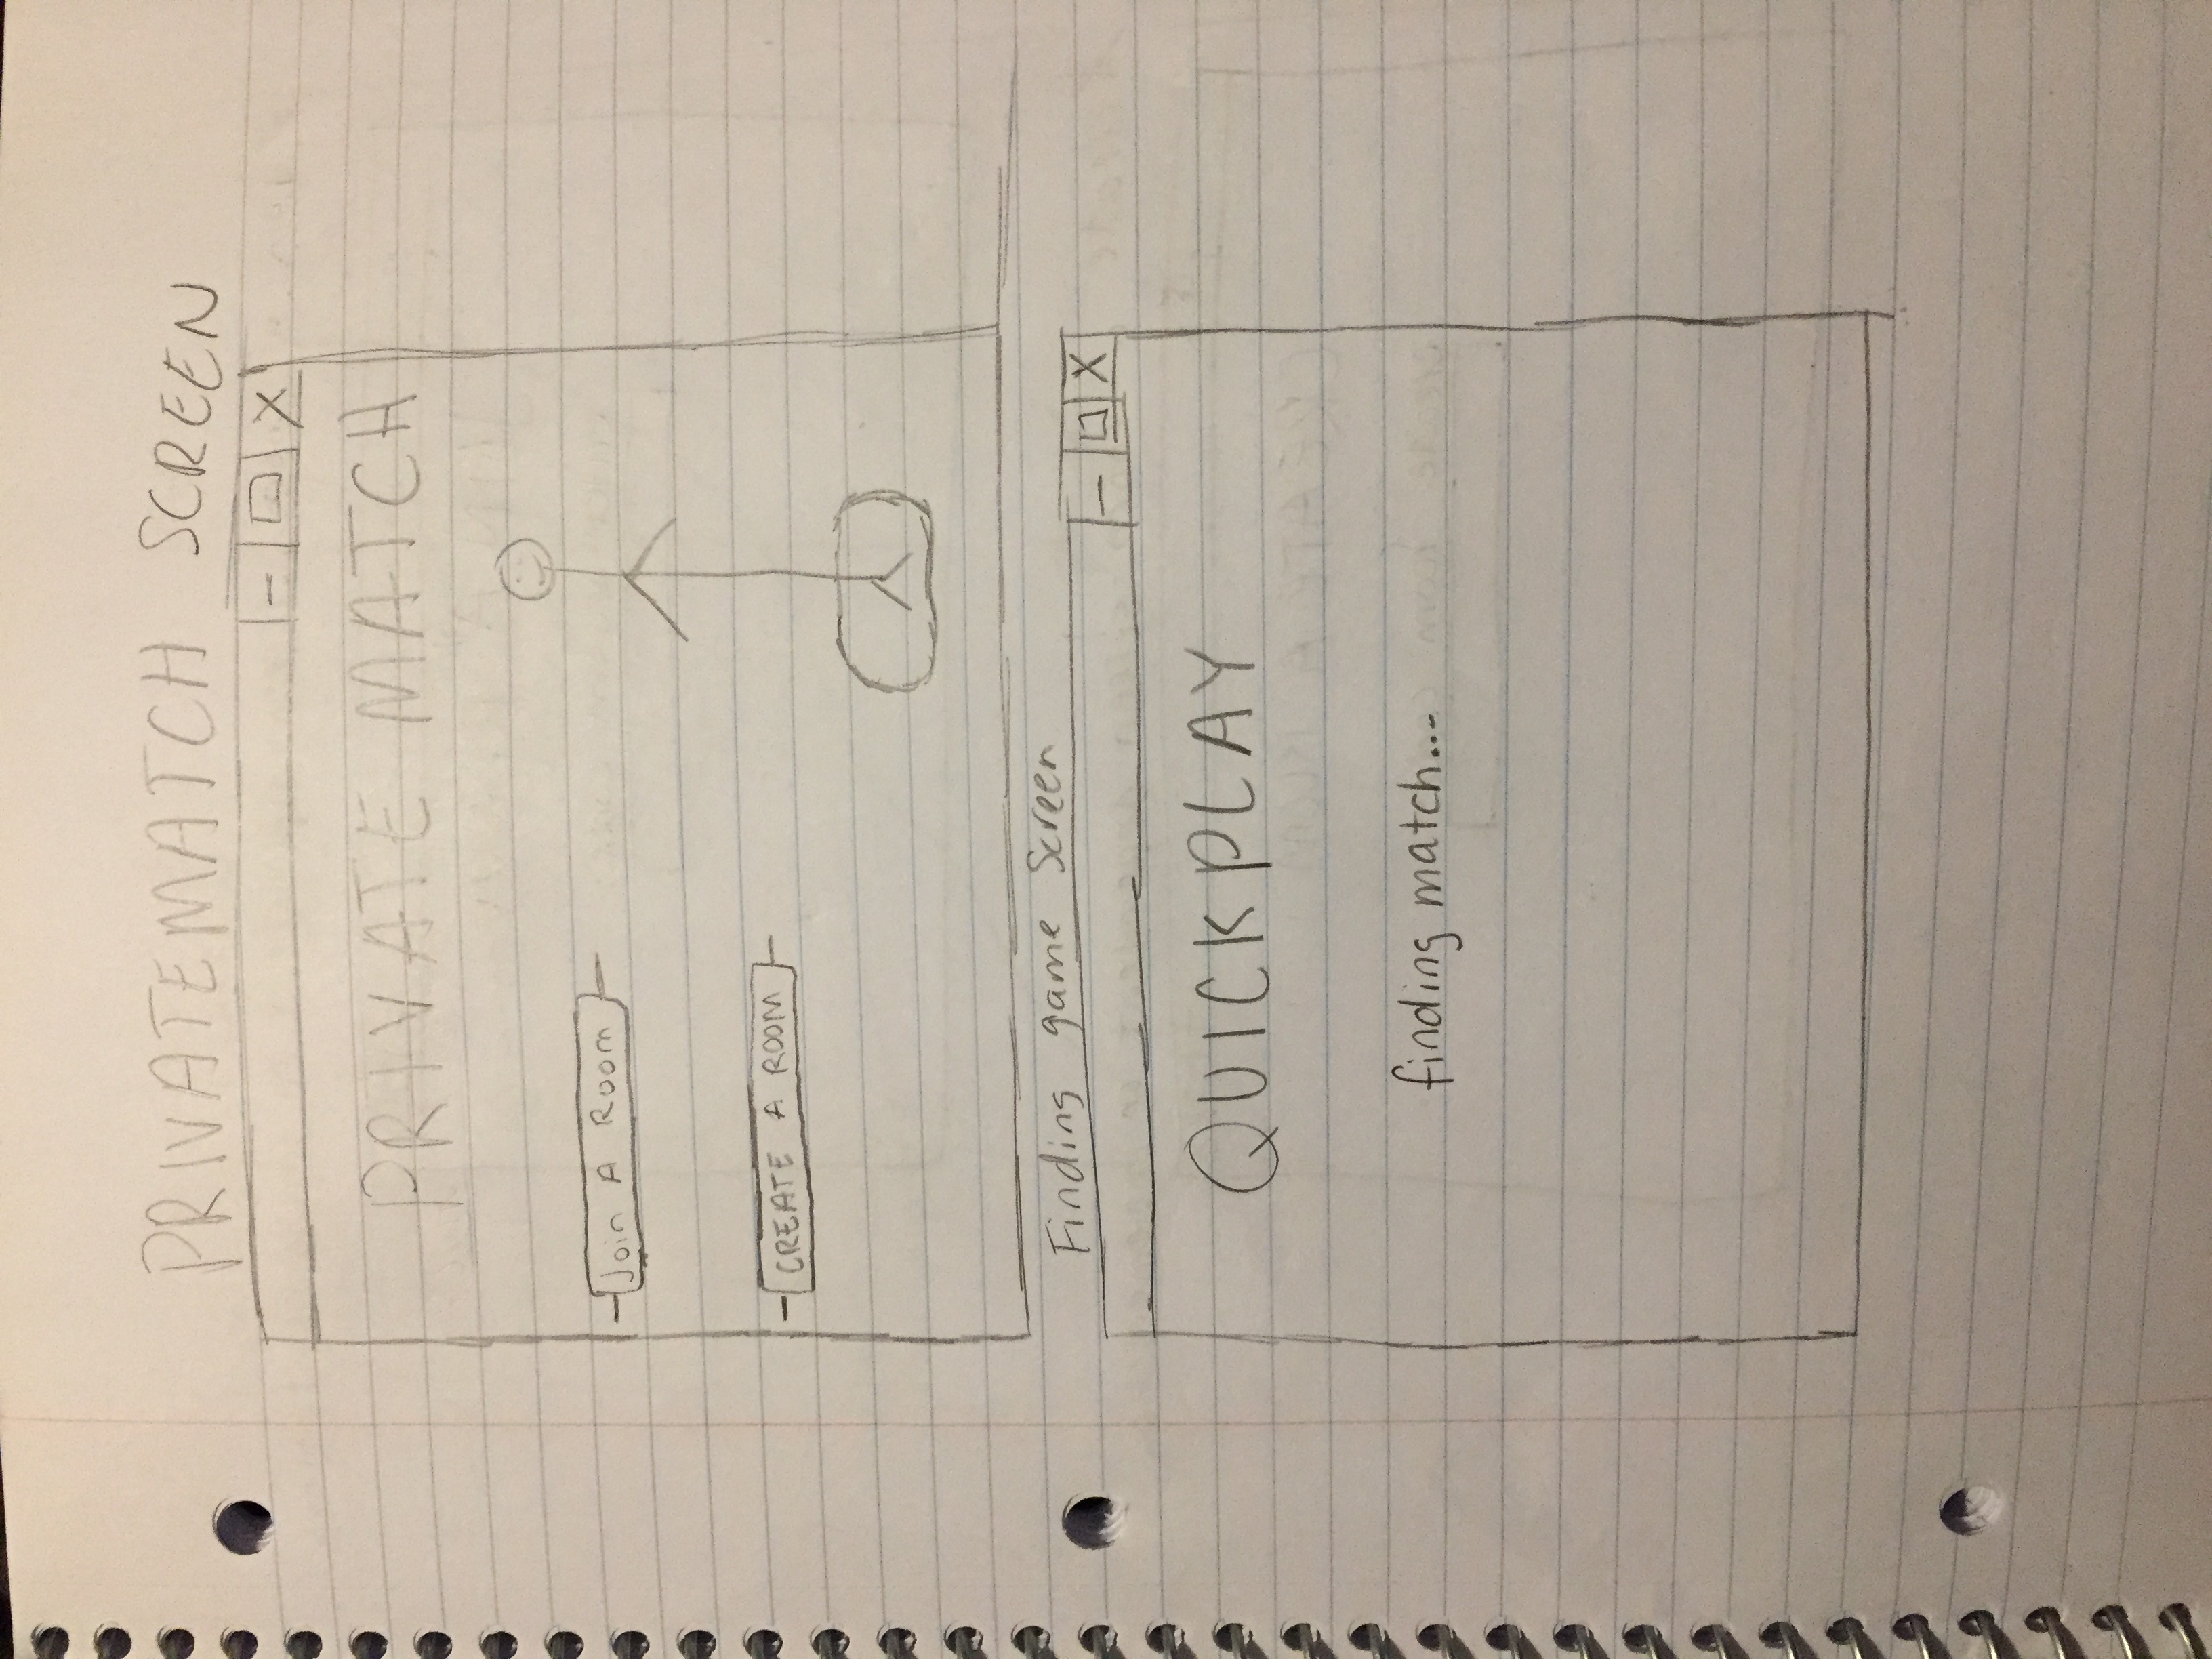 PRIVATEMATCH SCREEN
PRIVATE MATCH
Join A Room
CREATE A ROOM
Finding game Screen
QUICKPLAY
finding match...